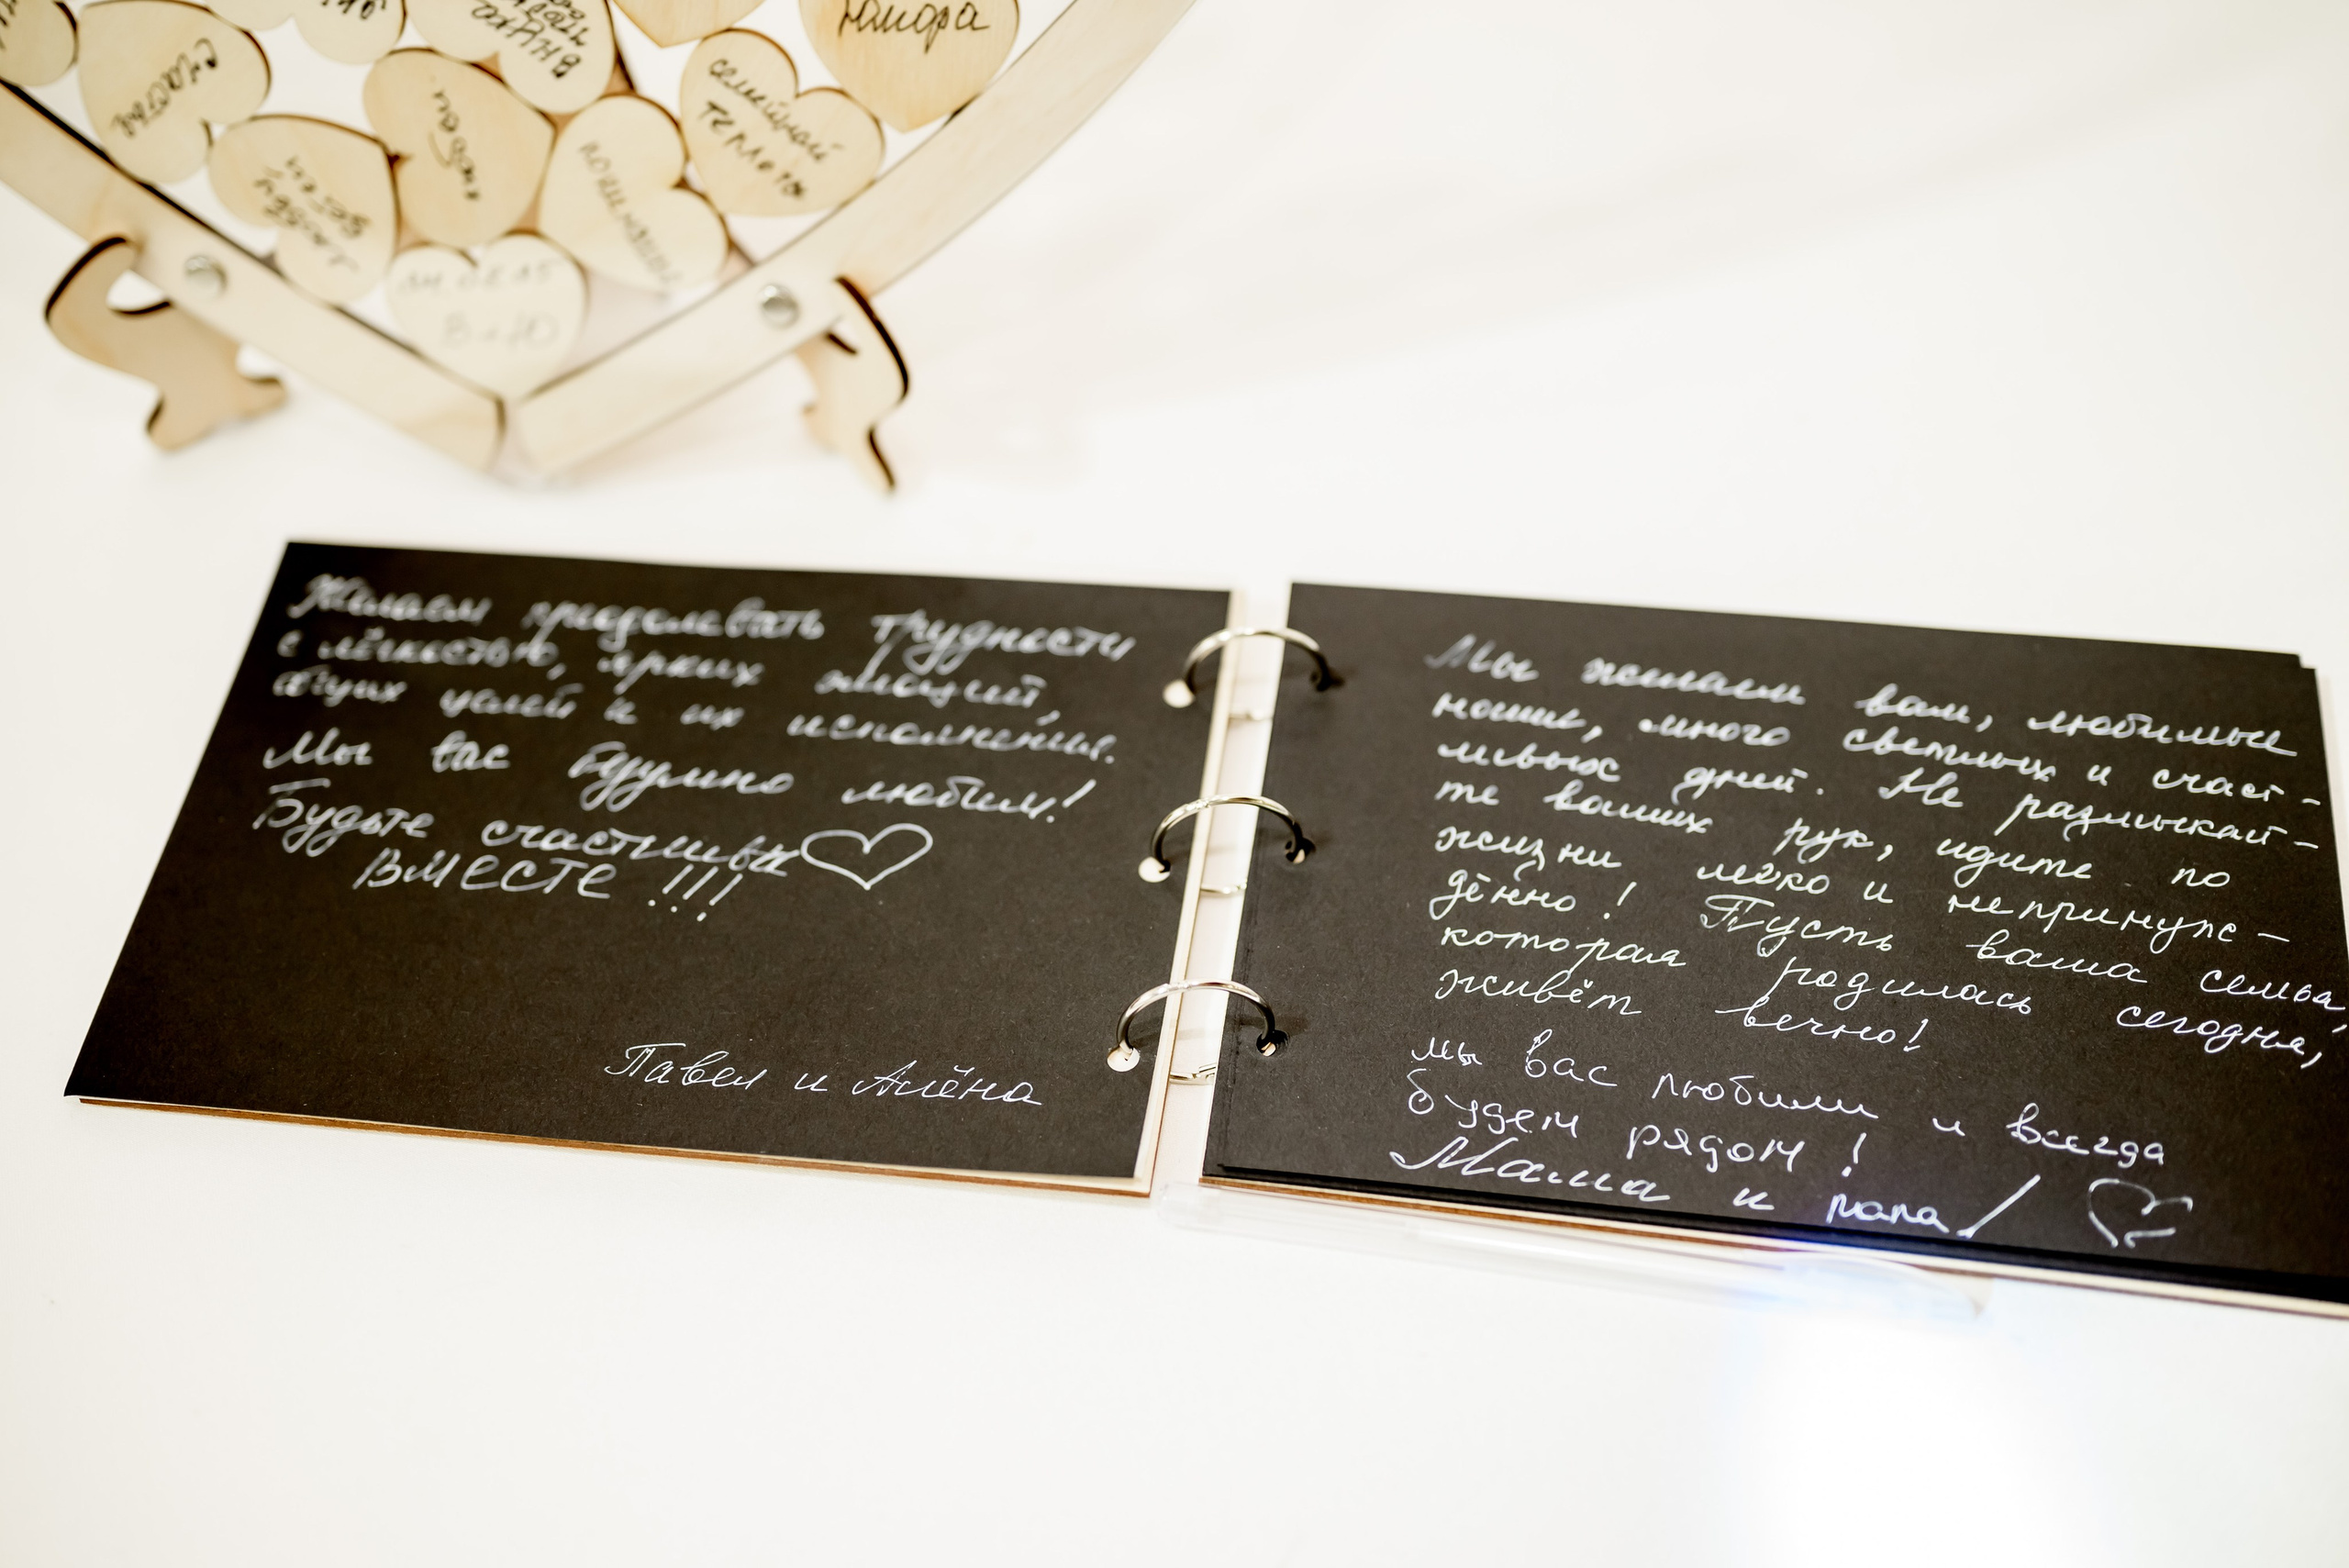 юмора
счастья
семейной
теплоты
любви
понимания
Желаем преодолевать трудности
с лёгкостью, ярких эмоций,
общих целей и их исполнения.
Мы вас безумно любим!
Будьте счастливы
ВМЕСТЕ!!!
Павел и Алёна
Мы желаем вам, любимые
наши, много светлых и счаст-
ливых дней. Не размыкай-
те ваших рук, идите по
жизни легко и непринуж-
дённо! Пусть ваша семья,
которая родилась сегодня,
живёт вечно!
Мы вас любим и всегда
будем рядом!
Мама и папа/